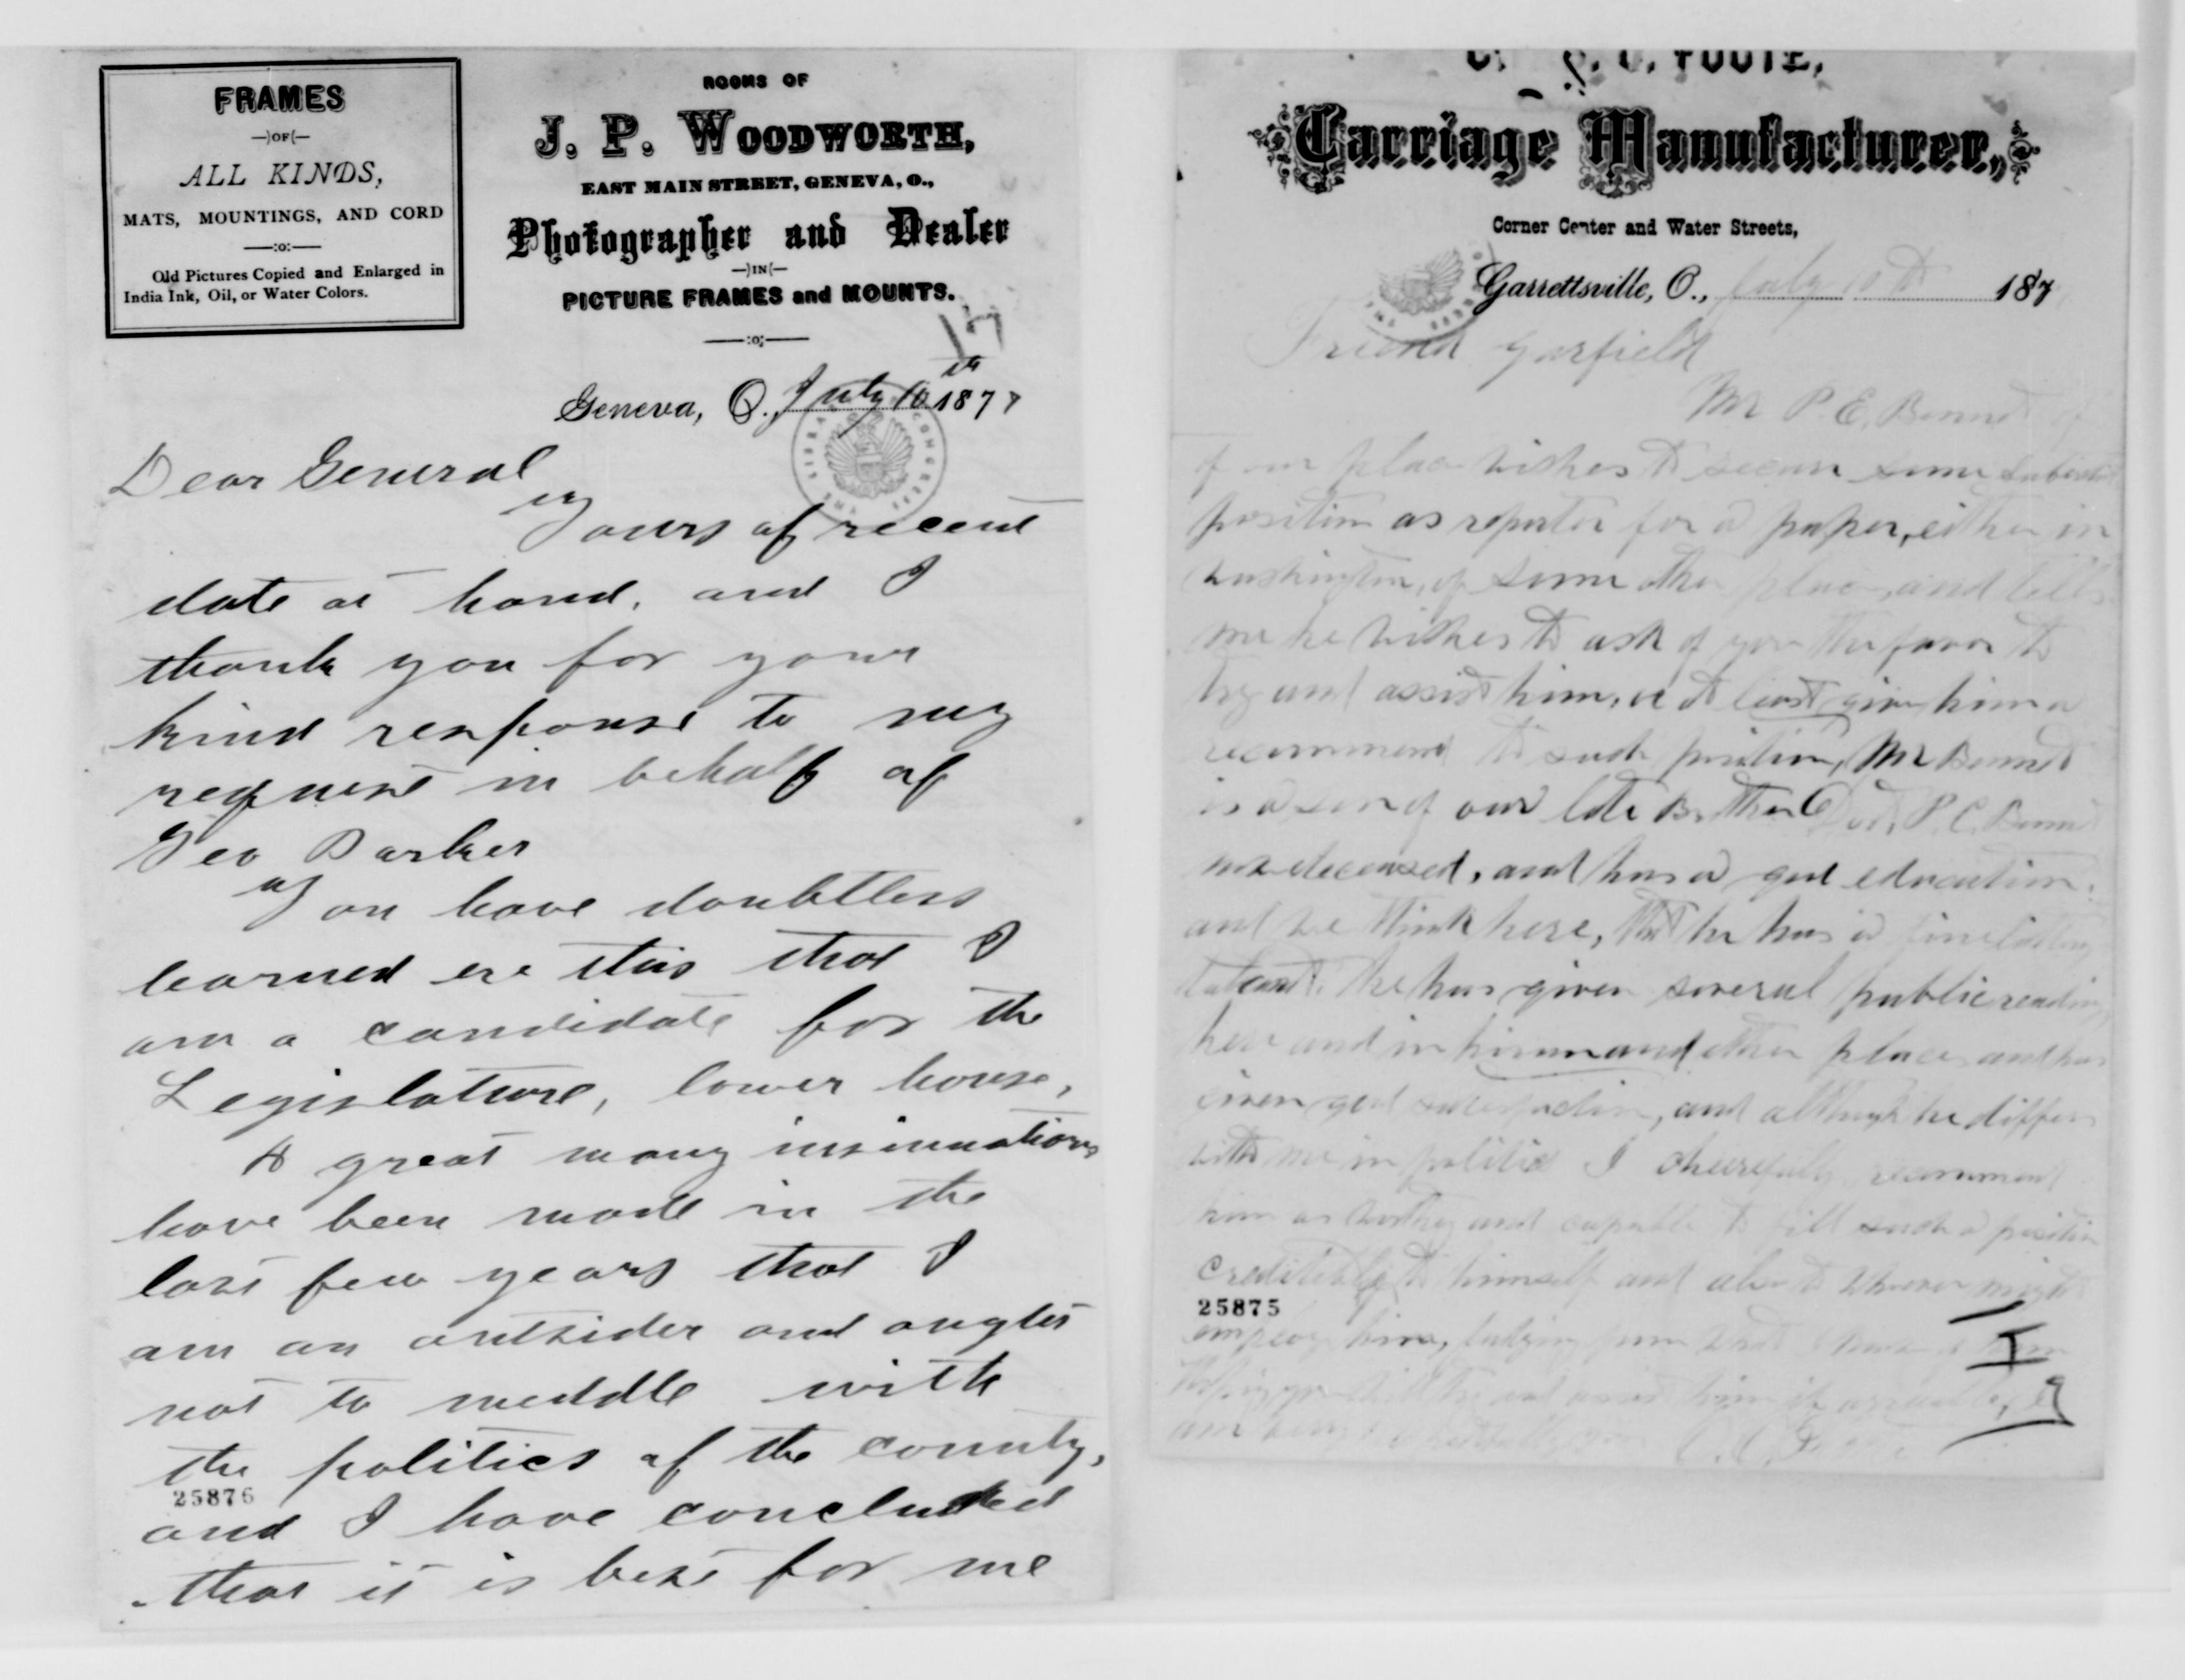 FRAMES
—)OF(—
ALL KINDS,
MATS, MOUNTINGS, AND CORD
—:o:—
Old Pictures Copied and Enlarged in
India Ink, Oil, or Water Colors.
ROOMS OF
J. P. WOODWORTH,
EAST MAIN STREET, GENEVA, O.,
Photographer and Dealer
—)IN(—
PICTURE FRAMES and MOUNTS.
—:o:—
17
Geneva, O. July 10th 1877
Dear General
Yours of recent
date at hand, and I
thank you for your
kind response to my
request in behalf of
Geo Barker
You have doubtless
learned ere this that I
am a candidate for the
Legislature, lower house,
A great many insinuations
have been made in the
last few years that I
am an outsider and ought
not to meddle with
the politics of the county,
25876
and I have concluded
that it is best for me
FOOTE,
Carriage Manufacturer,
Corner Center and Water Streets,
Garrettsville, O., July 10th 187
Friend Garfield
Mr P. E. Bennet of
of our place wishes to secure some
position as reporter for a paper, either in
Washington, or some other place, and tells
me he wishes to ask of you the favor to
try and assist him, or at least give him a
recommend to such position, Mr Bennet
is a son of our late Brother P. C. Bennet
now deceased, and has a good education,
and we think here, that he has a fine
talent. he has given several public reading
here and in hiram and other places and has
given good satisfaction, and although he differs
with me in politics I cheerfully recommend
him as worthy and capable to fill such a position
creditable to himself and also to whoever might
25875
employ him, judging from what I know of him
Hoping you will try and assist him if
am